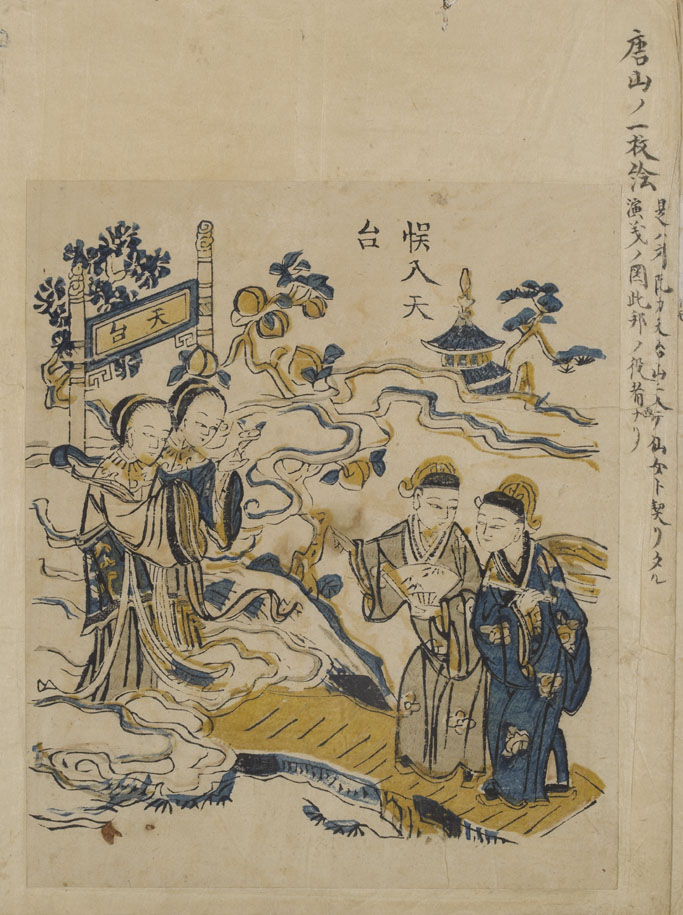 唐山ノ一枚絵
是ハ刘阮カ天台山ニ入テ仙女ト契リタル
演義ノ図此邦ノ役者画ナリ
悞入天
台
天台